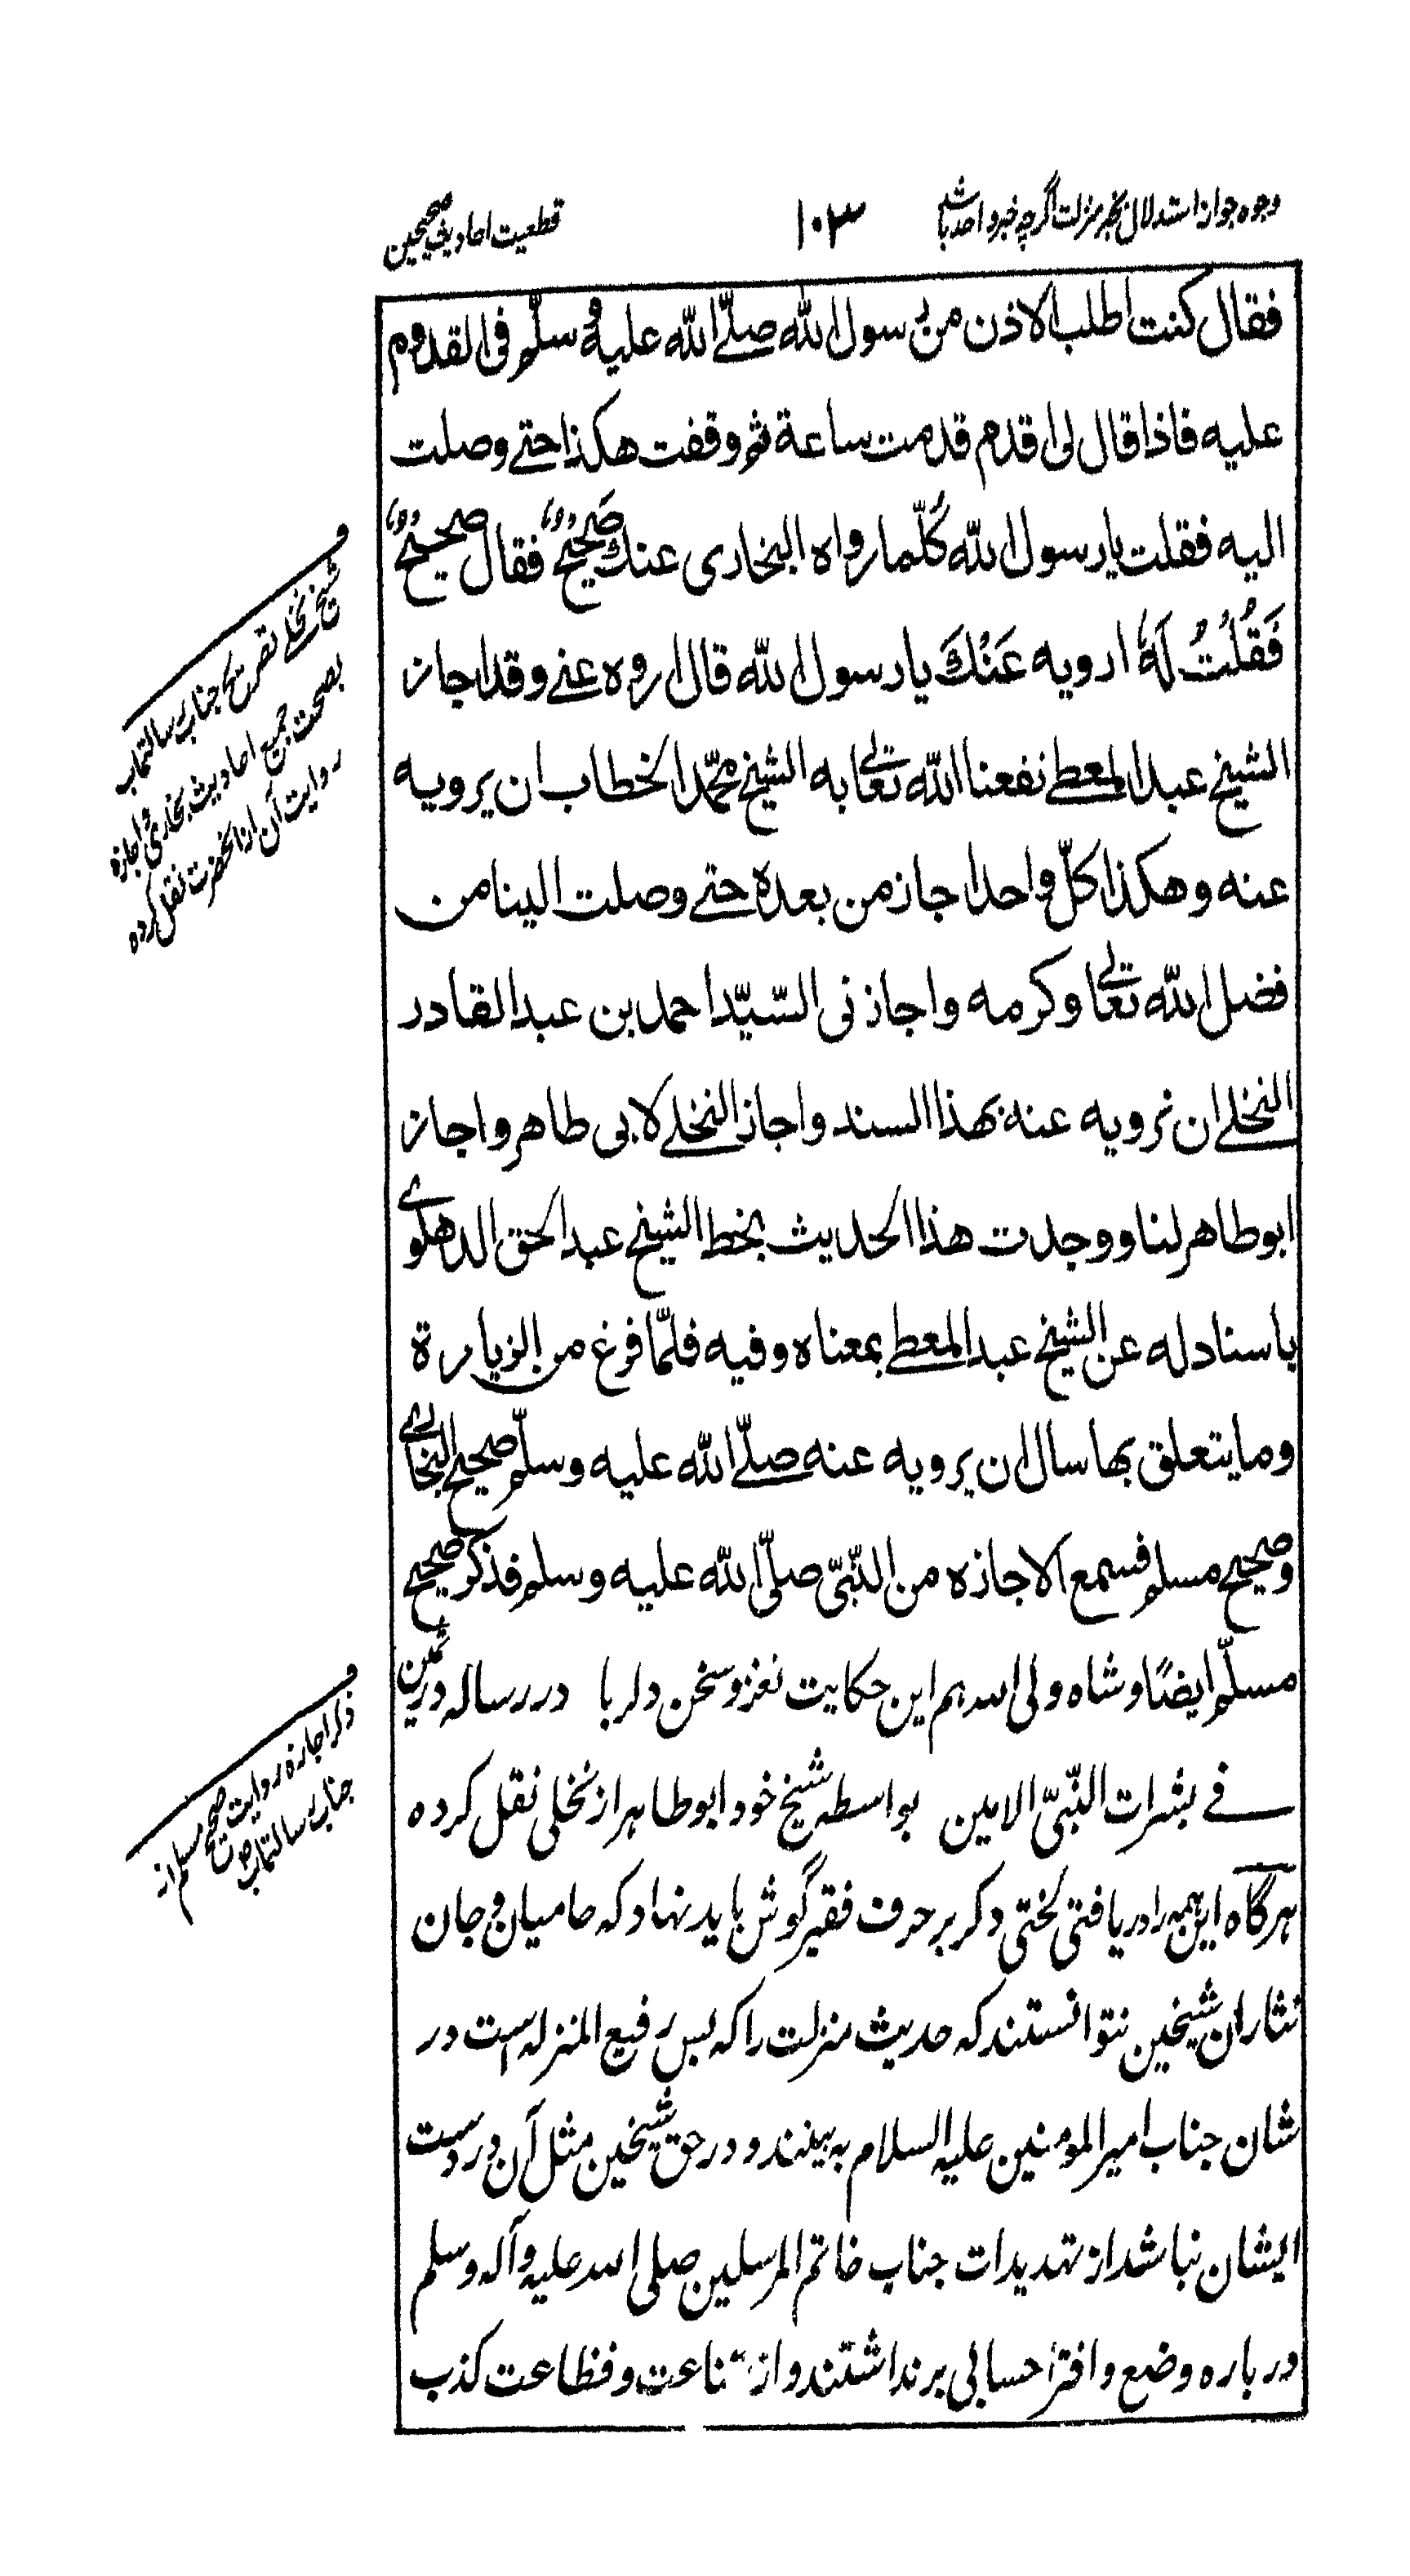 وجوه جواز استدلال بخبر منزلت اگرچه خبر واحد باشد
۱۰۳
قطعیت احادیث صحیحین
فقال کنت اطلب الاذن من رسول الله صلّی الله علیه وسلّم فی القدوم
علیه فاذا قال لی اقدم قدمت ساعة ثم وقفت هکذا حتے وصلت
الیه فقلت یا رسول الله کُلّما رواه البخاری عنك صَحِیْحٌ فقال صحیحٌ
فَقُلْتُ لَهٗ ارویه عَنْكَ یا رسول الله قال اروه عنے وقد اجاز
الشیخ عبد المعطے نفعنا الله تعالی به الشیخ محمّد الخطاب ان یرویه
عنه وهکذا کلّ واحد اجاز من بعده حتے وصلت الینا من
فضل الله تعالی وکرمه واجازنی السّیّد احمد بن عبد القادر
النخلے ان نرویه عنه بهذا السند واجاز النخلے لابی طاهر واجاز
ابو طاهر لنا ووجدت هذا الحدیث بخط الشیخ عبد الحق الدهلوے
باسناد له عن الشیخ عبد المعطے بمعناه وفیه فلمّا فرغ من الزیارة
وما یتعلق بها سال ان یرویه عنه صلّے الله علیه وسلّم صحیح البخارے
وصحیح مسلم فسمع الاجازه من النّبیّ صلّی الله علیه وسلم فذکر صحیح
مسلّم ایضًا و شاه ولی الله هم این حکایت نغز و سخن دلربا در رساله در ثمین
فے بشرات النّبیّ الامین بواسطه شیخ خود ابو طاهر از نخلی نقل کرده
هرگاه این همه را دریافتی لختی دگر بر حرف فقیر گوش باید نهاد که حامیان و جان
نثاران شیخین نتوانستند که حدیث منزلت را که بس رفیع المنزله است در
شان جناب امیر المؤمنین علیه السلام به بینند و در حق شیخین مثل آن در دست
ایشان نباشد از تهدیدات جناب خاتم المرسلین صلی الله علیه وآله وسلم
درباره وضع و افترا حسابی برنداشتند و از شناعت و فظاعت کذب
ف
شیخ نخلے تصریح جناب رسالتماب
بصحت جمیع احادیث بخاری و اجازه
روایت آن از آنحضرت نقل کرده
ف
ذکر اجازه روایت صحیح مسلم از
جناب رسالتماب